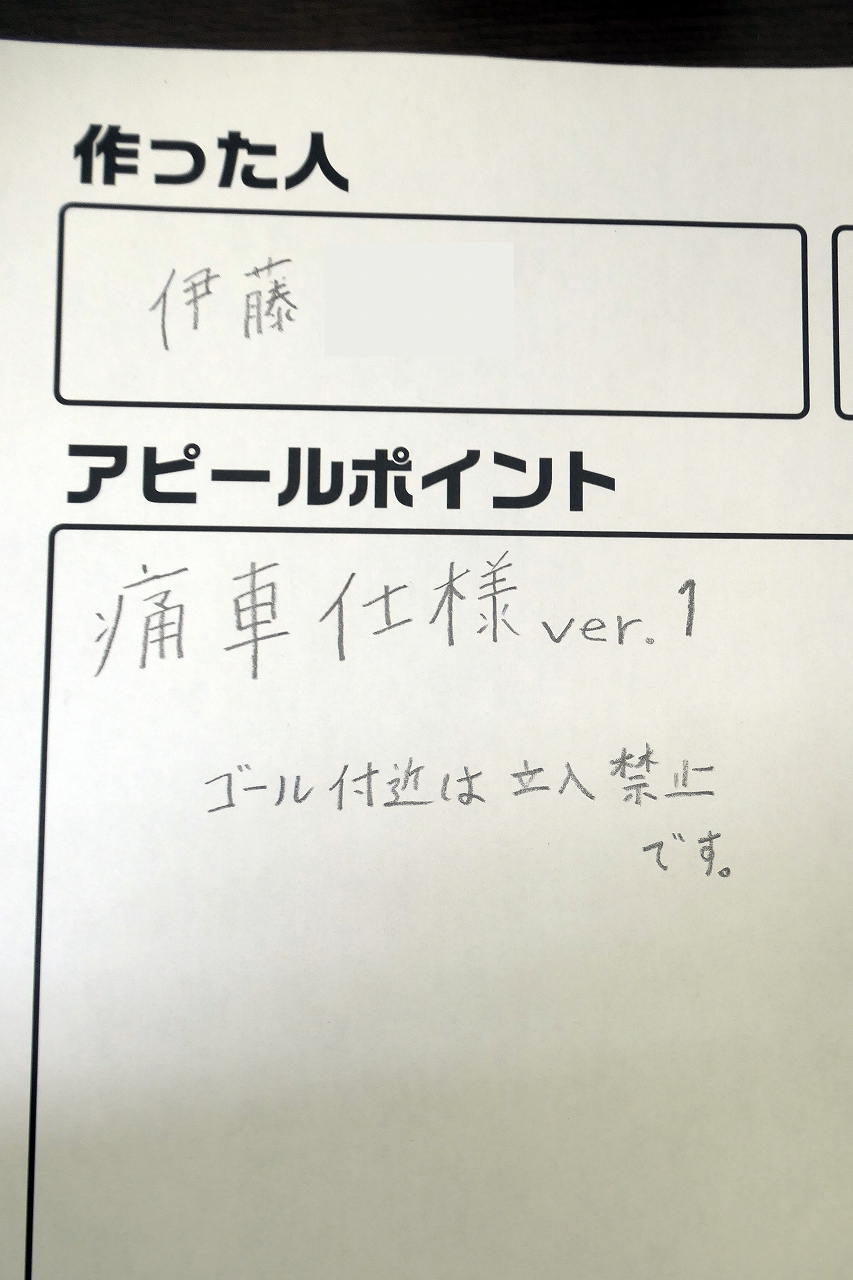 作った人
伊藤
アピールポイント
痛車仕様 ver.1
ゴール付近は立入禁止
です。